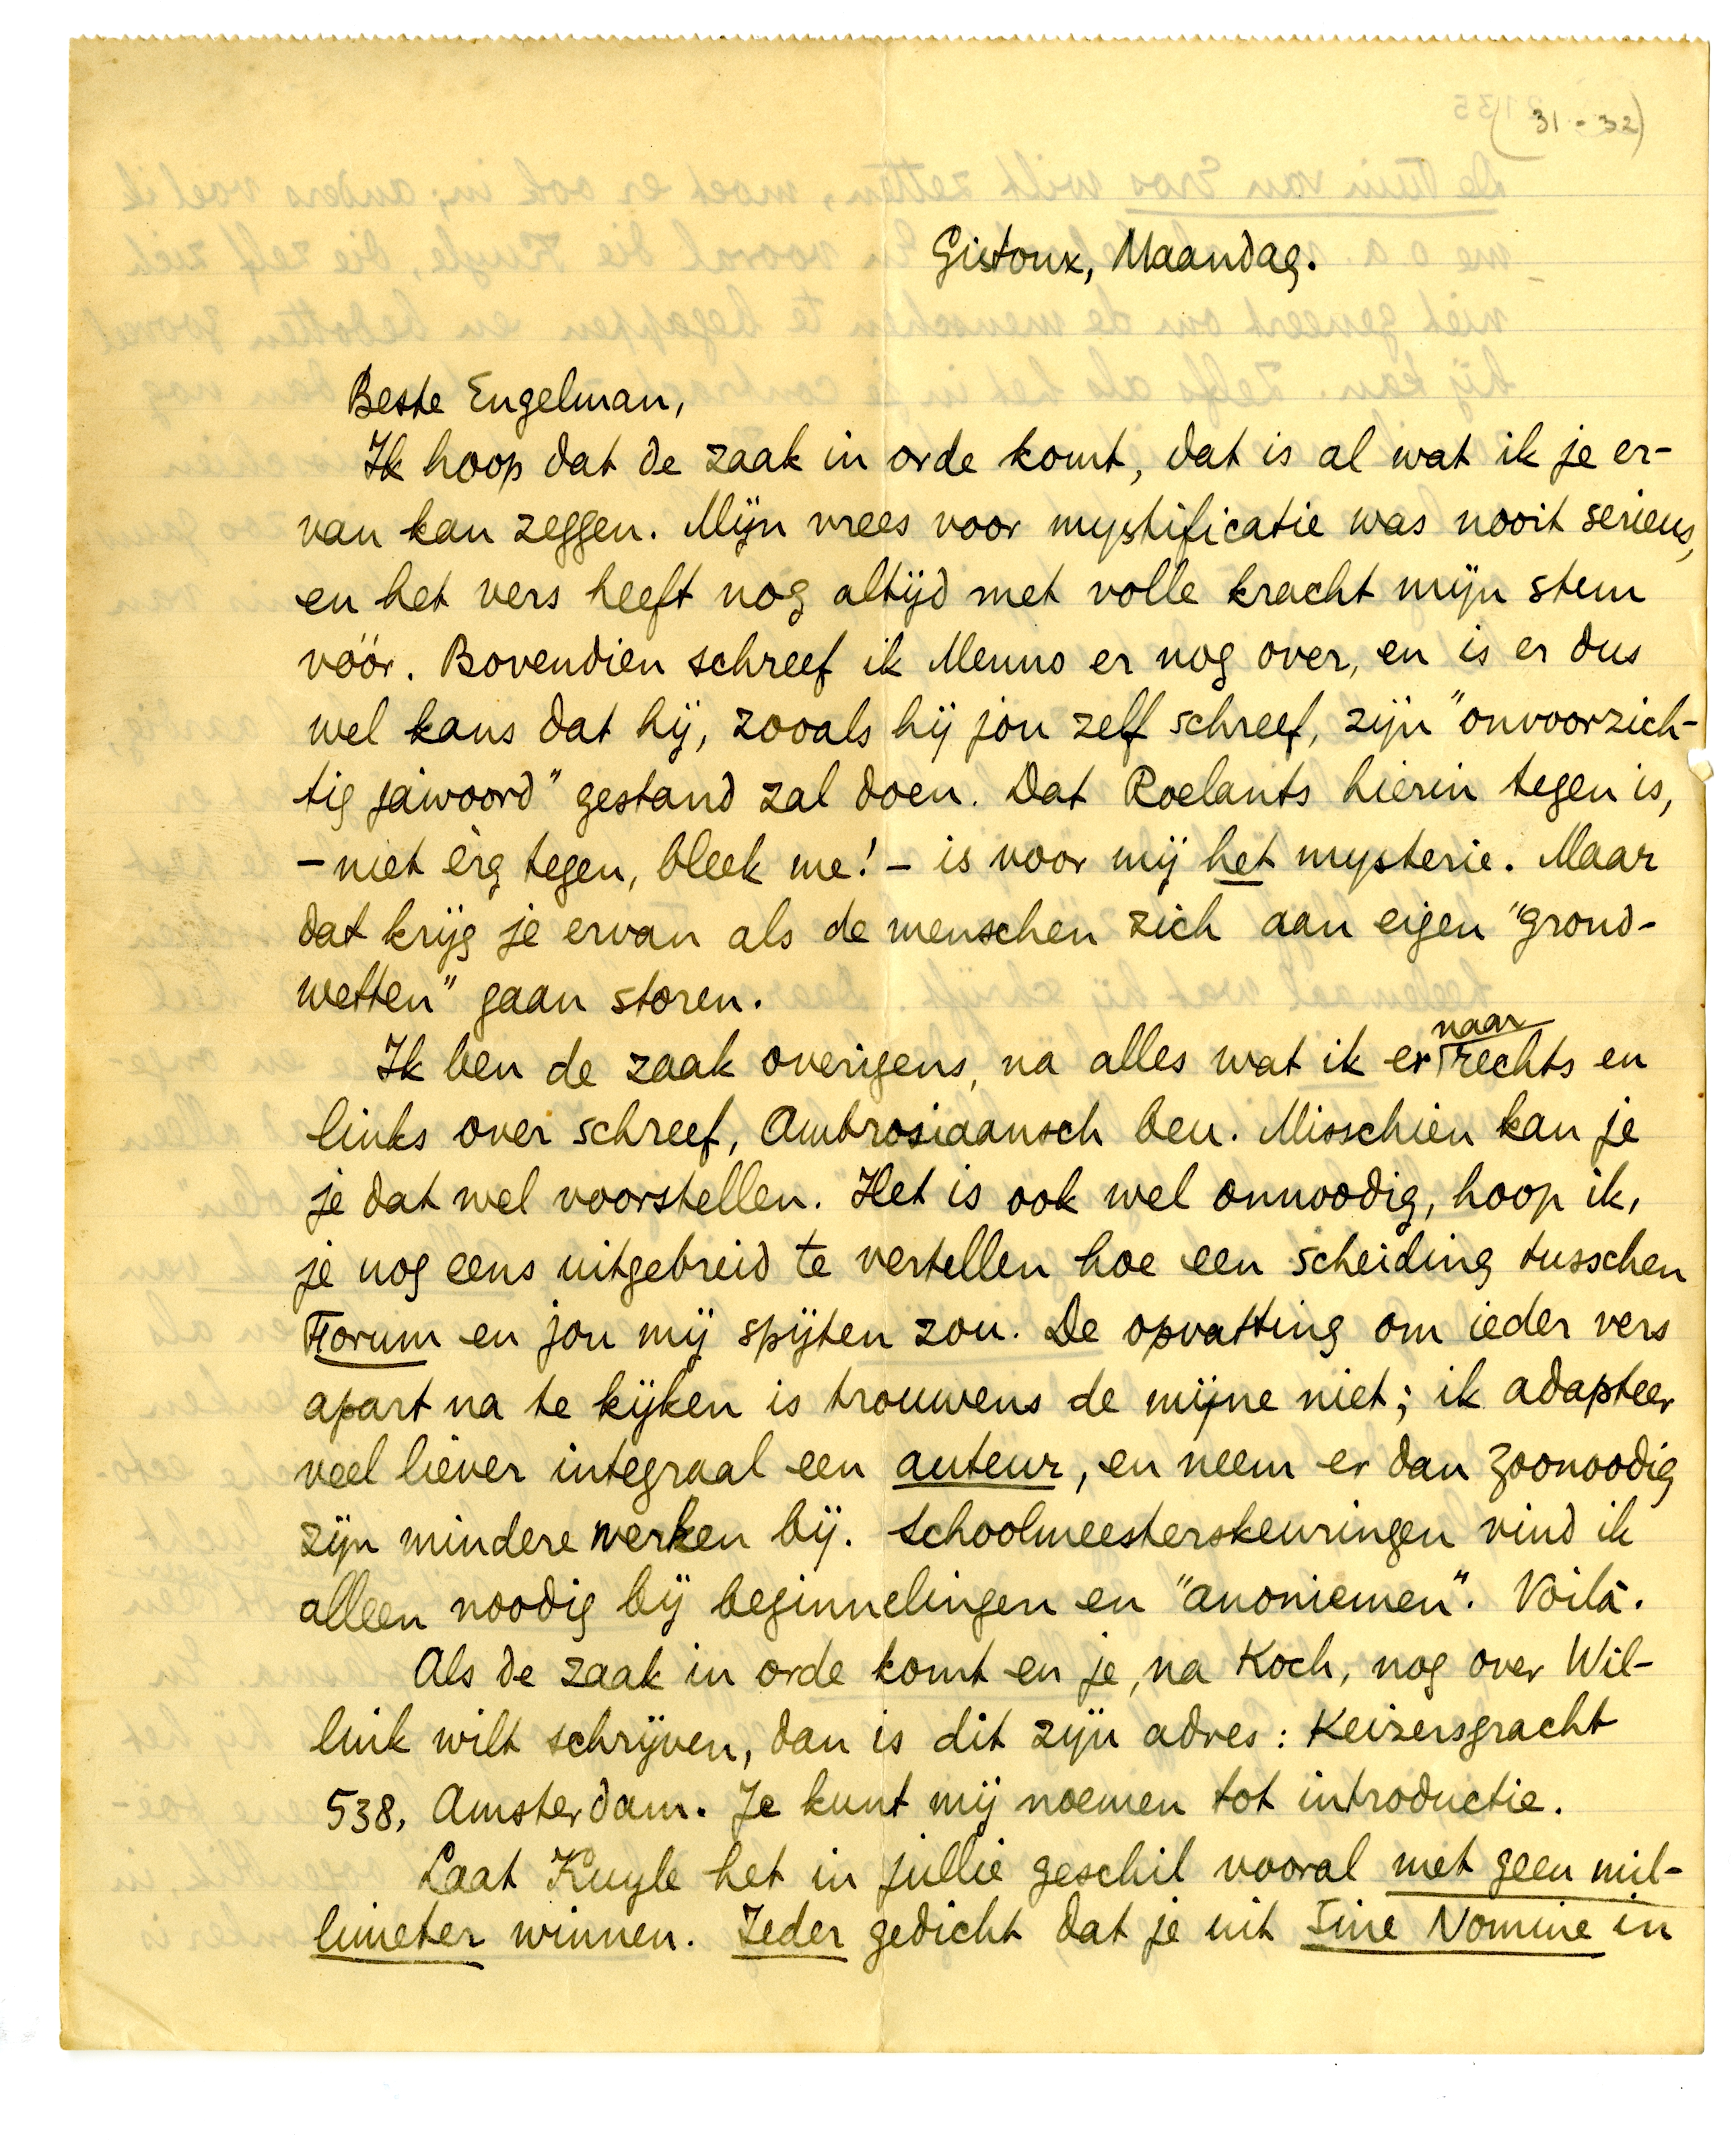 (31-32)
Gistoux, Maandag.
Beste Engelman,
Ik hoop dat de zaak in orde komt, dat is al wat ik je er-
van kan zeggen. Mijn vrees voor mystificatie was nooit serieus,
en het vers heeft nog altijd met volle kracht mijn stem
vóór. Bovendien schreef ik Menno er nog over, en is er dus
wel kans dat hij, zooals hij jou zelf schreef, zijn "onvoorzich-
tig jawoord" gestand zal doen. Dat Roelants hierin tegen is,
- niet èrg tegen, bleek me! - is voor mij het mysterie. Maar
dat krijg je ervan als de menschen zich aan eigen "grond-
wetten" gaan storen.
Ik ben de zaak overigens, na alles wat ik er naar rechts en
links over schreef, Ambrosiaansch beu. Misschien kan je
je dat wel voorstellen. Het is ook wel onnoodig, hoop ik,
je nog eens uitgebreid te vertellen hoe een scheiding tusschen
Forum en jou mij spijten zou. De opvatting om ieder vers
apart na te kijken is trouwens de mijne niet; ik adapteer
veel liever integraal een auteur, en neem er dan zoonoodig
zijn mindere werken bij. Schoolmeesterskeuringen vind ik
alleen noodig bij beginnelingen en "anoniemen". Voilà.
Als de zaak in orde komt en je, na Koch, nog over Wil-
link wilt schrijven, dan is dit zijn adres: Keizersgracht
538, Amsterdam. Je kunt mij noemen tot introductie.
Laat Kuyle het in jullie geschil vooral met geen mil-
limeter winnen. Ieder gedicht dat je uit Sine Nomine in